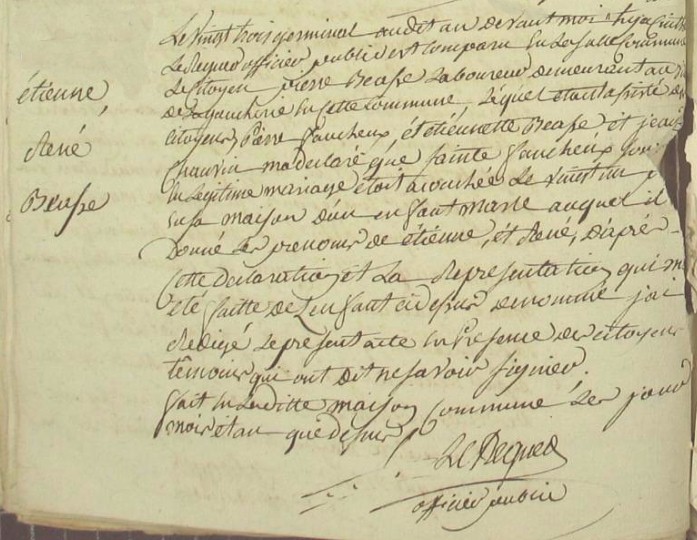 étienne,
René
Beasse
Le vingt trois germinal audit an devant moi
Le Requed officier public est comparu en la salle commune
Le citoyen pierre Beasse Laboureur demeurant au
de la gauchine en cette commune, Lequel était assisté de
citoyens Pierre faucheux, et étiennette Beasse et jean
Chauvin ma declaré que sainte faucheux son
En legitime mariage étoit acouchée Le vingt un
en sa maison d'un enfant masle auquel il
Donné les prenoms de étienne, et René, D'après
Cette declaration et La Representation qui m
été faitte de L'enfant cidessus denommé j'ai
Redigé Le present acte en Presense des citoyens
témoins qui ont dit ne savoir signer.
fait en Laditte maison Commune Les jour
mois et an que dessus
Le Requed
officier public